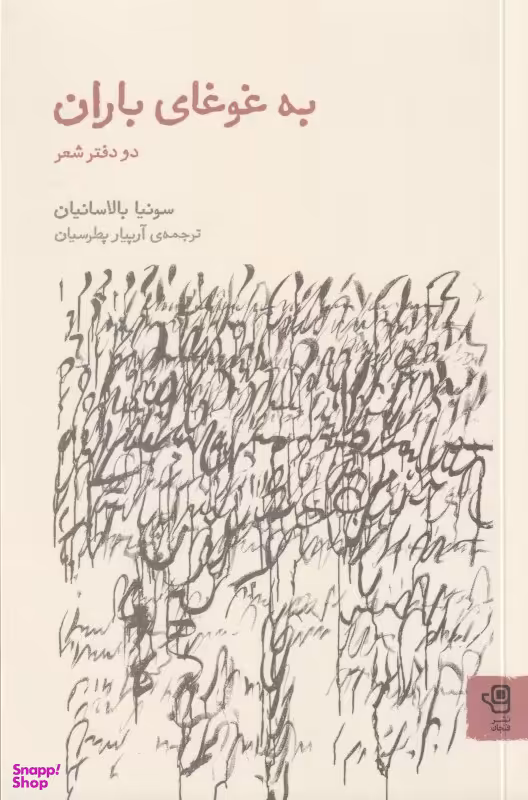 به غوغای باران
دو دفتر شعر
سونیا بالاسانیان
ترجمه‌ی آرپیار پطرسیان
نشر
فنجان
Snapp!
Shop